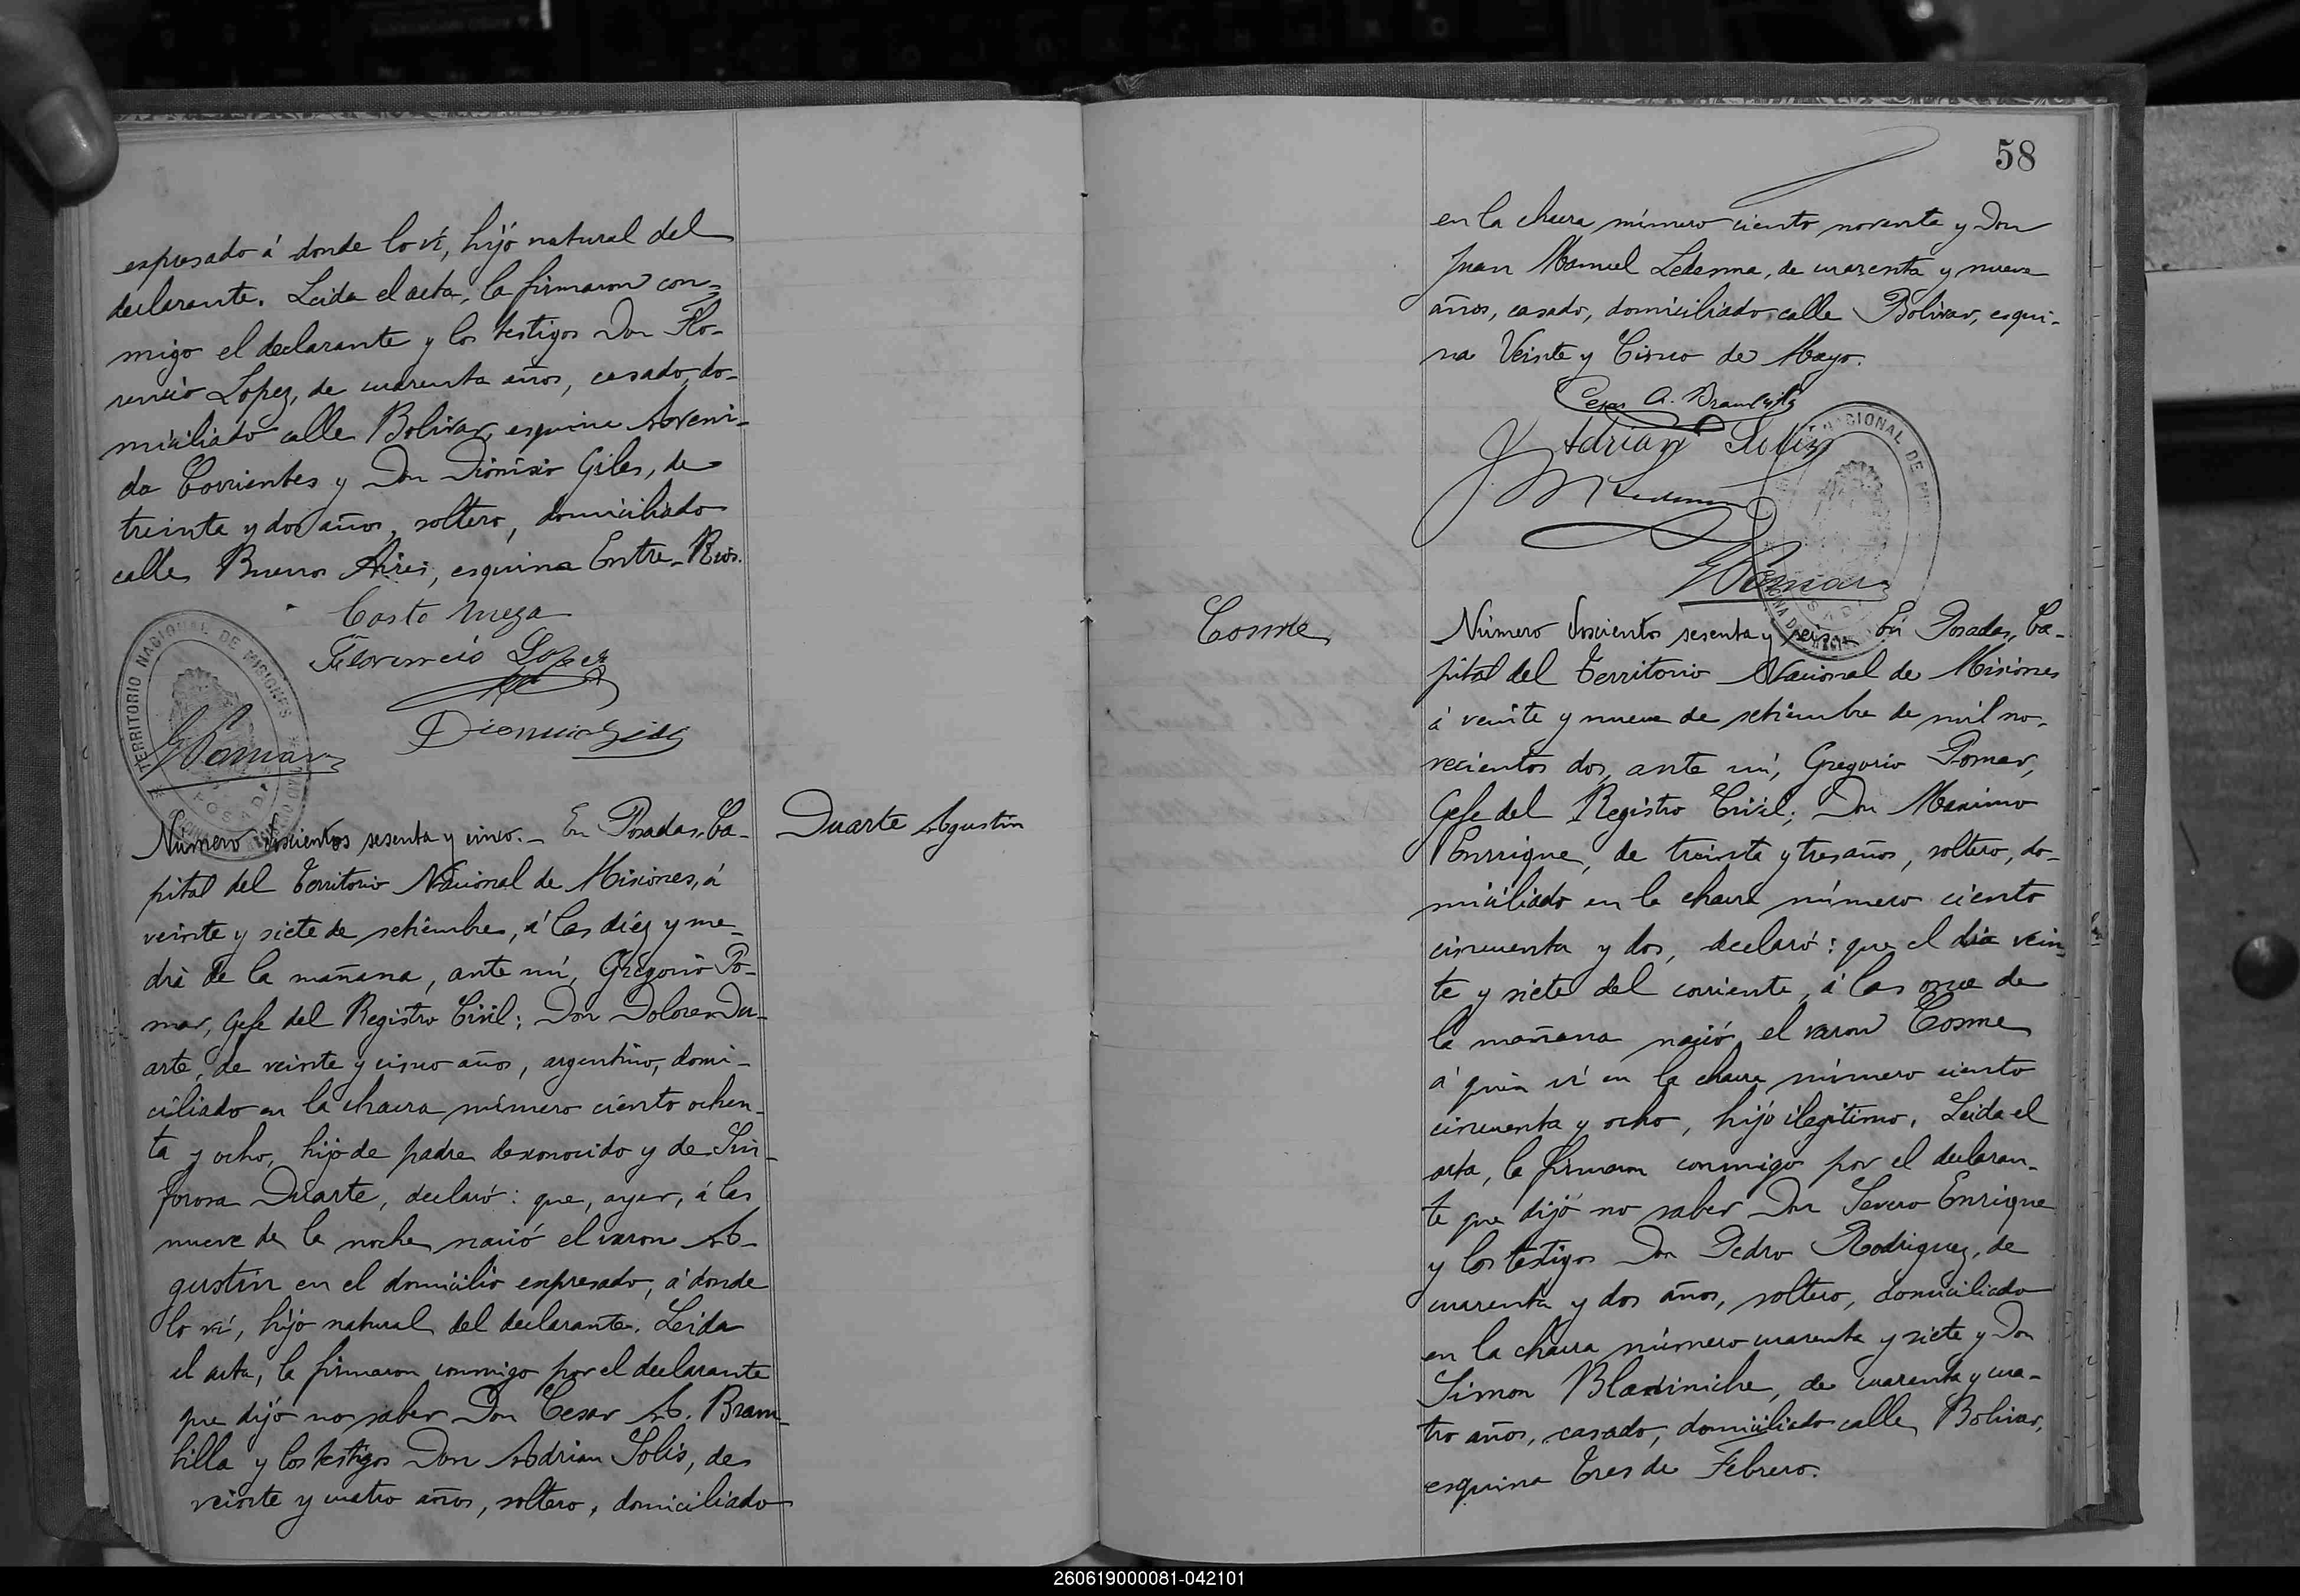 espresado á donde lo ví, hijo natural del
declarante. Leida el acta, la firmaron con-
migo el declarante y los testigos Don Flo-
rencio Lopez, de cuarenta años, casado, do-
miciliado calle Bolivar, esquina Aveni-
da Corrientes y Don Dionisio Giles, de
treinta y dos años, soltero, domiciliado
calle Buenos Aires, esquina Entre-Rios.
Casto Meza
Florencio Lopez
Dionicio Giles
GPomar
TERRITORIO NACIONAL DE MISIONES
POSADAS
Número doscientos sesenta y cinco.- En Posadas, Ca-
Duarte Agustin
pital del Territorio Nacional de Misiones, á
veinte y siete de setiembre, á las diéz y me-
dia de la mañana, ante mí, Gregorio Po-
mar, Gefe del Registro Civil; Don Dolores Du-
arte, de veinte y cinco años, argentino, domi-
ciliado en la chacra número ciento ochen-
ta y ocho, hijo de padre desconocido y de Sin-
forosa Duarte, declaró: que, ayer, á las
nueve de la noche nació el varon A-
gustin en el domicilio espresado, á donde
lo ví, hijo natural del declarante. Leida
el acta, la firmaron conmigo por el declarante
que dijo no saber Don Cesar A. Bram-
billa y los testigos Don Adrian Solis, de
veinte y cuatro años, soltero, domiciliado
58
en la chacra número ciento noventa y Don
Juan Manuel Ledesma, de cuarenta y nueve
años, casado, domiciliado calle Bolivar, esqui-
na Veinte y Cinco de Mayo.
Cesar A. Brambilla
Adrian Solis
J M Ledesma
GPomar
NACIONAL DE MI
Cosme
Número doscientos sesenta y seis.- En Posadas, Ca-
pital del Territorio Nacional de Misiones
á veinte y nueve de setiembre de mil no-
vecientos dos, ante mí, Gregorio Pomar,
Gefe del Registro Civil; Don Maximo
Enrrique, de treinta y tres años, soltero, do-
miciliado en la chacra número ciento
cincuenta y dos, declaró: que el dia vein-
te y siete del corriente, á las once de
la mañana nació el varon Cosme
á quien ví en la chacra número ciento
cincuenta y ocho, hijo ilegitimo. Leida el
acta, la firmaron conmigo por el declaran-
te que dijo no saber Don Severo Enrique
y los testigos Don Pedro Rodriguez, de
cuarenta y dos años, soltero, domiciliado
en la chacra número cuarenta y siete y Don
Simon Bladiniche, de cuarenta y cua-
tro años, casado, domiciliado calle Bolivar,
esquina Tres de Febrero.
260619000081-042101